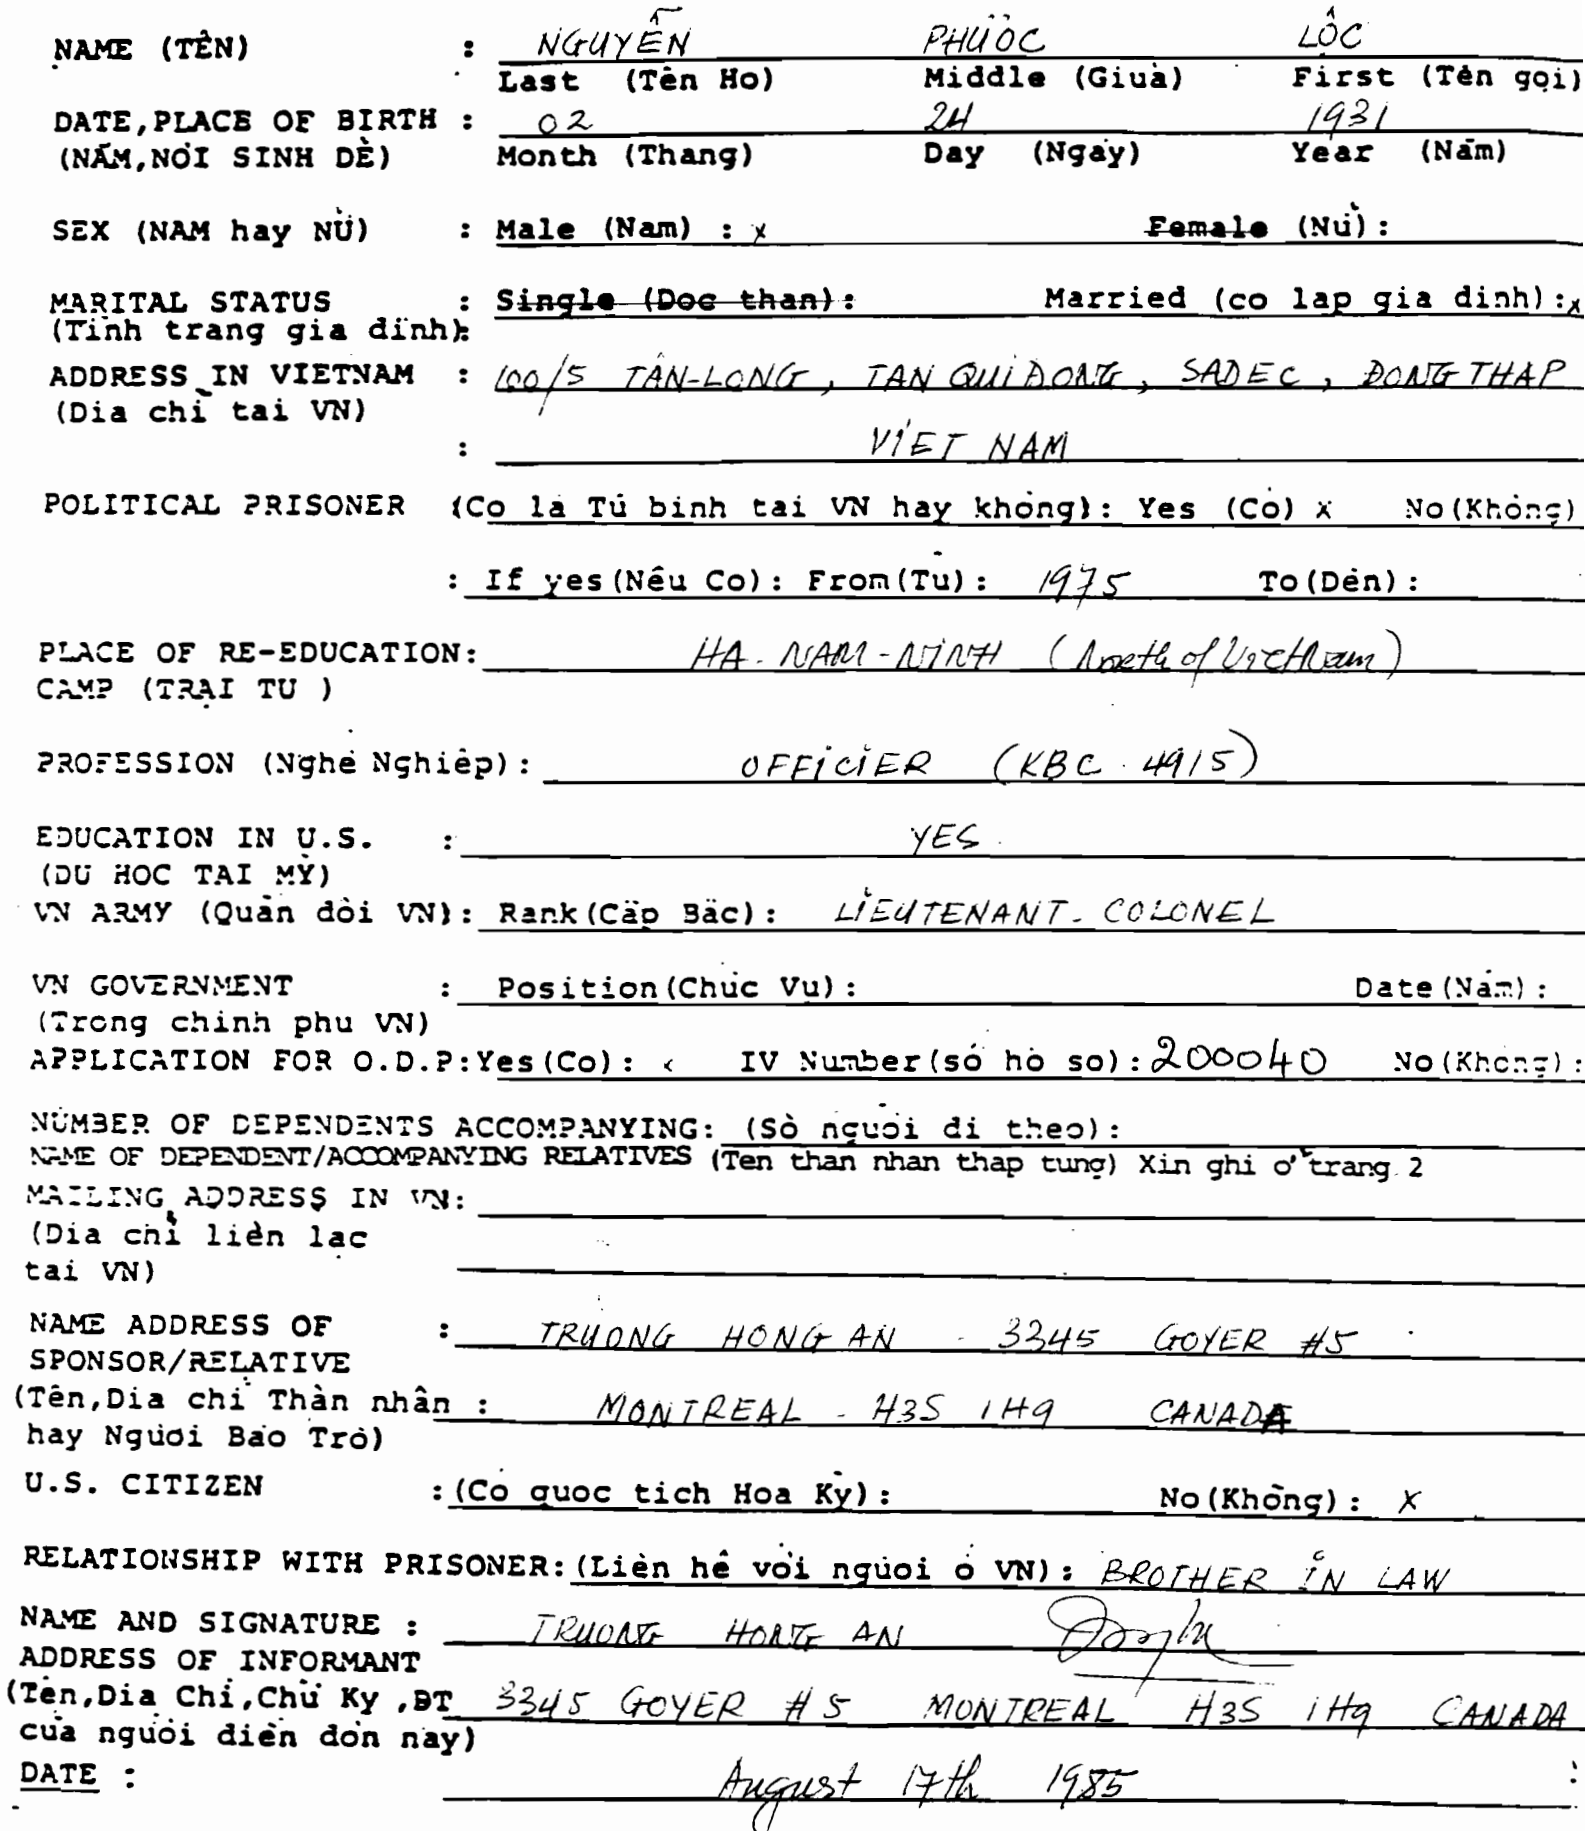 NAME (TÊN) : NGUYỄN PHƯỚC LỘC
Last (Tên Ho) Middle (Giuả) First (Tên gọi)
DATE,PLACE OF BIRTH : 02 24 1931
(NĂM,NƠI SINH DẺ) Month (Thang) Day (Ngày) Year (Năm)
SEX (NAM hay NỮ) : Male (Nam) : x Female (Nữ):
MARITAL STATUS : Single (Doc than): Married (co lap gia dinh):x
(Tình trang gia dình):
ADDRESS IN VIETNAM : 100/5 TÂN-LONG, TAN QUI DONG, SADEC, DONG THAP
(Dia chỉ tai VN)
: VIET NAM
POLITICAL PRISONER (Co là Tù binh tai VN hay không): Yes (Có) x No(Không)
: If yes(Nêu Co): From(Tù): 1975 To(Dèn):
PLACE OF RE-EDUCATION: HA-NAM-NINH (North of Vietnam)
CAMP (TRẠI TU )
PROFESSION (Nghè Nghiêp): OFFICIER (KBC 4915)
EDUCATION IN U.S. : YES
(DU HOC TAI MỸ)
VN ARMY (Quân dôi VN): Rank(Câp Bâc): LIEUTENANT-COLONEL
VN GOVERNMENT : Position(Chúc Vu): Date(Năm):
(Trong chinh phu VN)
APPLICATION FOR O.D.P:Yes(Co): IV Number(số hò so): 200040 No(Không):
NUMBER OF DEPENDENTS ACCOMPANYING: (Sò nguòi di theo):
NAME OF DEPENDENT/ACCOMPANYING RELATIVES (Ten than nhan thap tung) Xin ghi ở trang 2
MAILING ADDRESS IN VN:
(Dia chỉ lièn lac
tai VN)
NAME ADDRESS OF : TRUONG HONG AN - 3345 GOYER #5
SPONSOR/RELATIVE
(Tên,Dia chỉ Thàn nhân : MONTREAL - H3S 1H9 CANADA
hay Nguòi Bao Trò)
U.S. CITIZEN :(Có quoc tich Hoa Kỳ): No(Không): X
RELATIONSHIP WITH PRISONER:(Lièn hê vòi nguòi ỏ VN): BROTHER IN LAW
NAME AND SIGNATURE : TRUONG HONG AN
ADDRESS OF INFORMANT
(Tên,Dia Chỉ,Chữ Ky ,ĐT 3345 GOYER #5 MONTREAL H3S 1H9 CANADA
của nguòi dièn dòn này)
DATE : August 17th 1985